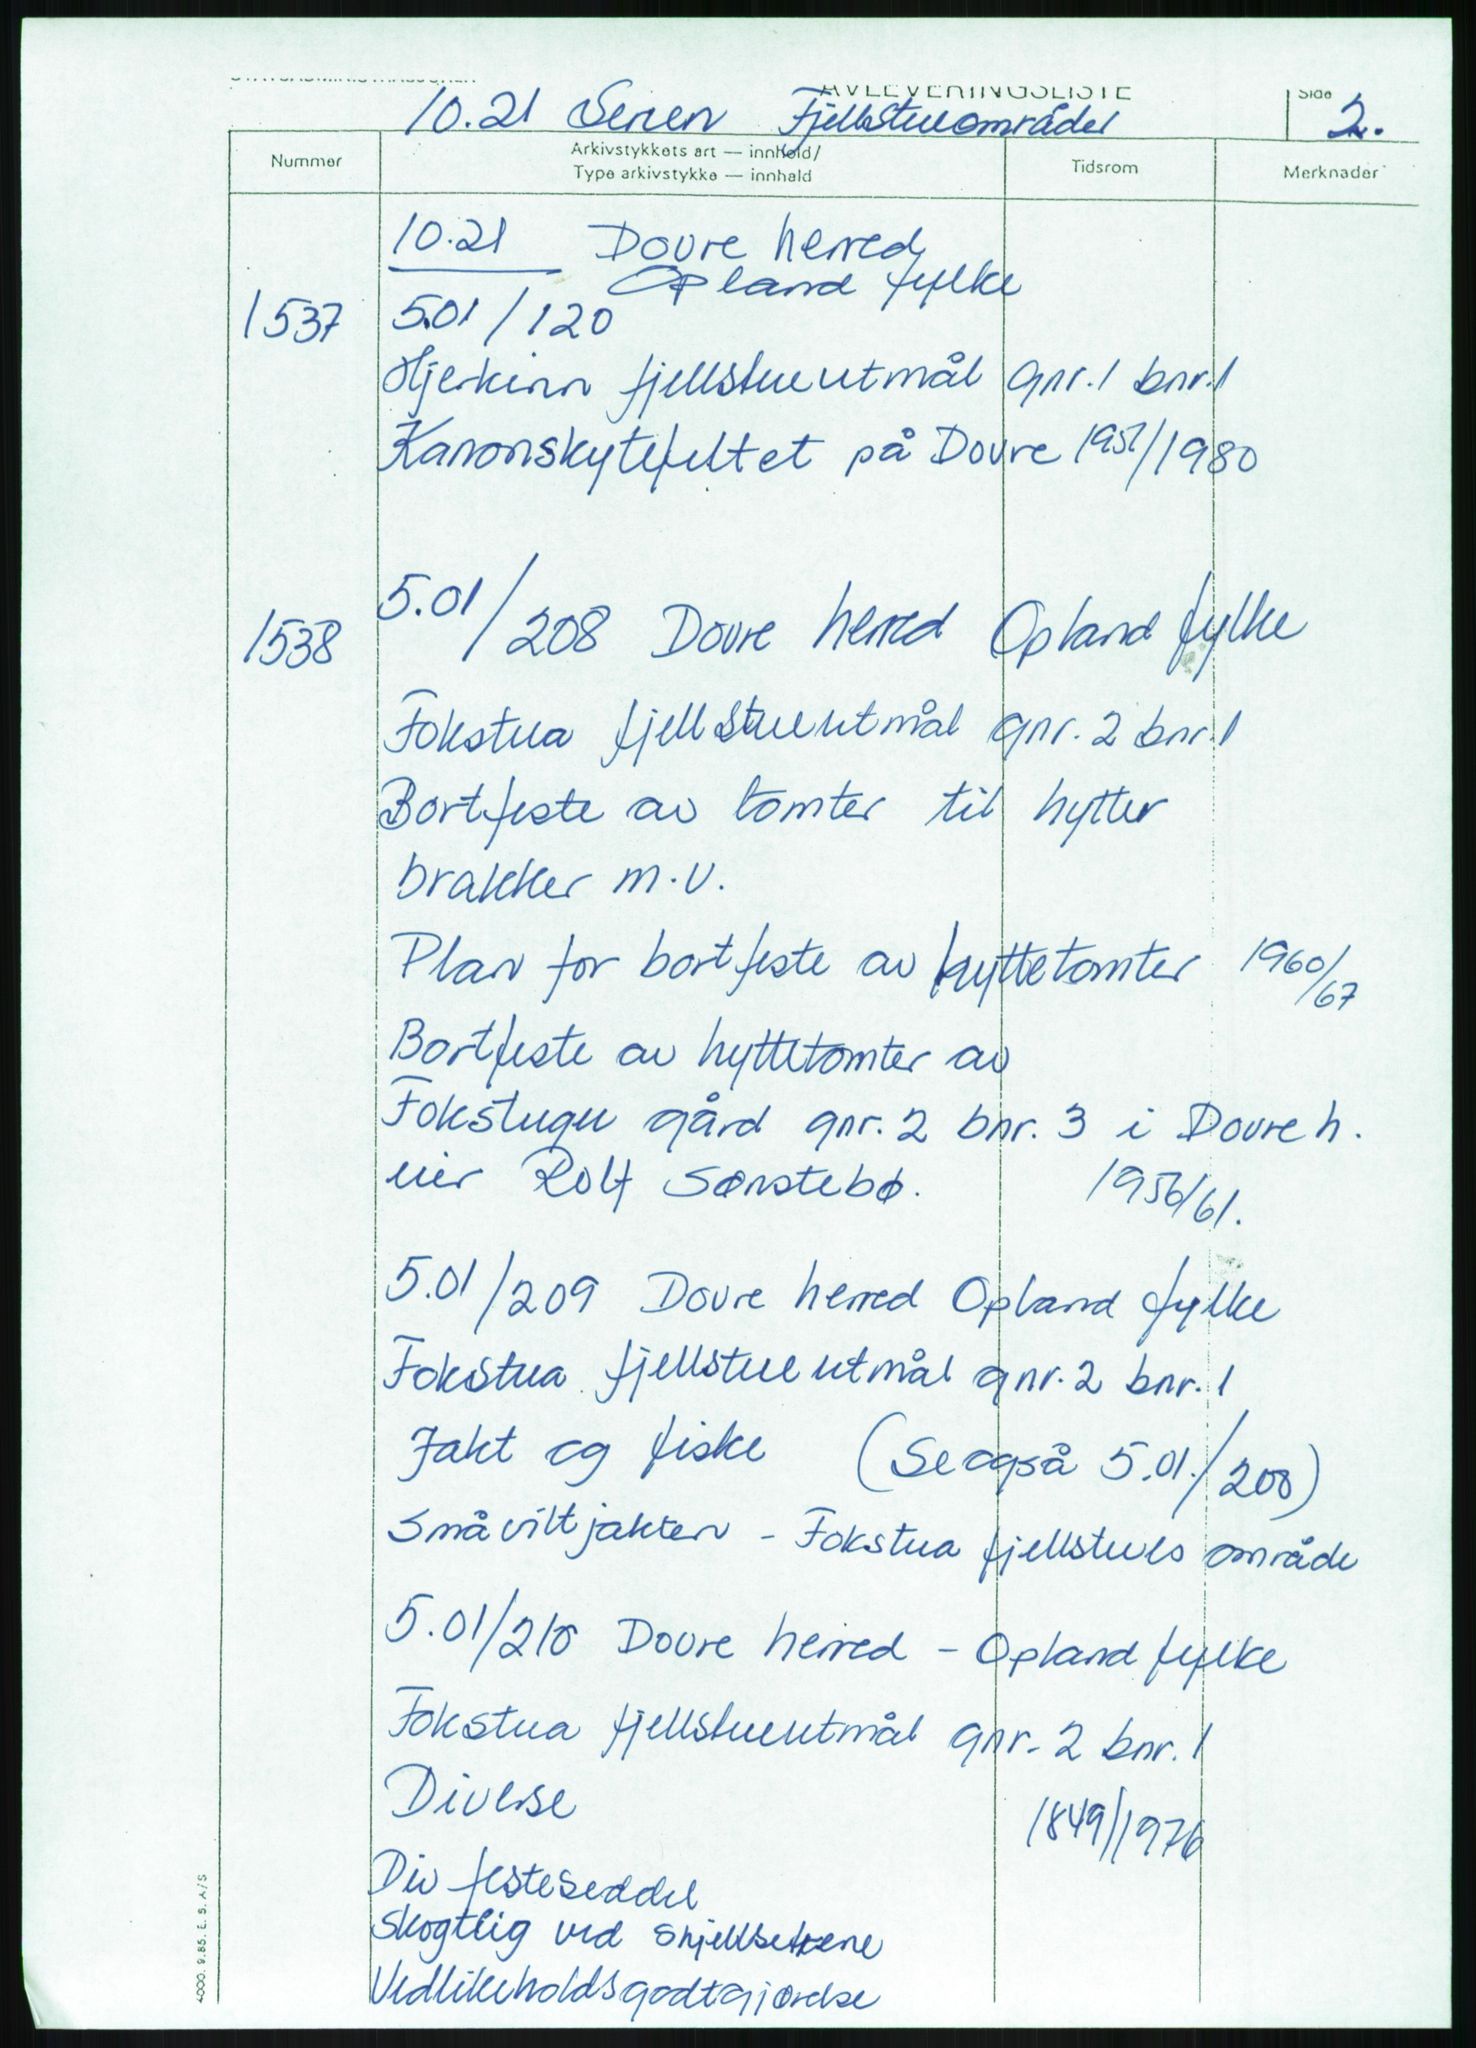 AVLEVERINGSLISTE
Side
10.21 Serien Fjellstueområder 2.
Nummer
Arkivstykkets art — innhold/
Type arkivstykke — innhald
Tidsrom
Merknader
10.21 Dovre herred
Opland fylke
1537 5.01/120
Hjerkinn fjellstueutmål gnr. 1 bnr. 1
Kanonskytefeltet på Dovre 1957/1980
1538 5.01/208 Dovre herred Opland fylke
Fokstua fjellstueutmål gnr. 2 bnr. 1
Bortfeste av tomter til hytter
brakker m.v.
Plan for bortfeste av hyttetomter 1960/67
Bortfeste av hyttetomter av
Fokstugu gård gnr. 2 bnr. 3 i Dovre h.
eier Rolf Sønstebø. 1956/61.
5.01/209 Dovre herred Opland fylke
Fokstua fjellstueutmål gnr. 2 bnr. 1
Jakt og fiske (Se også 5.01./200)
Småviltjakten - Fokstua fjellstues område
5.01/210 Dovre herred - Opland fylke
Fokstua fjellstueutmål gnr. 2 bnr. 1
Diverse 1849/1976
Div festeseddel
Skogtlig ved
Vedlikeholdsgodtgjørelse
4000. 9.85. E. S. A/S